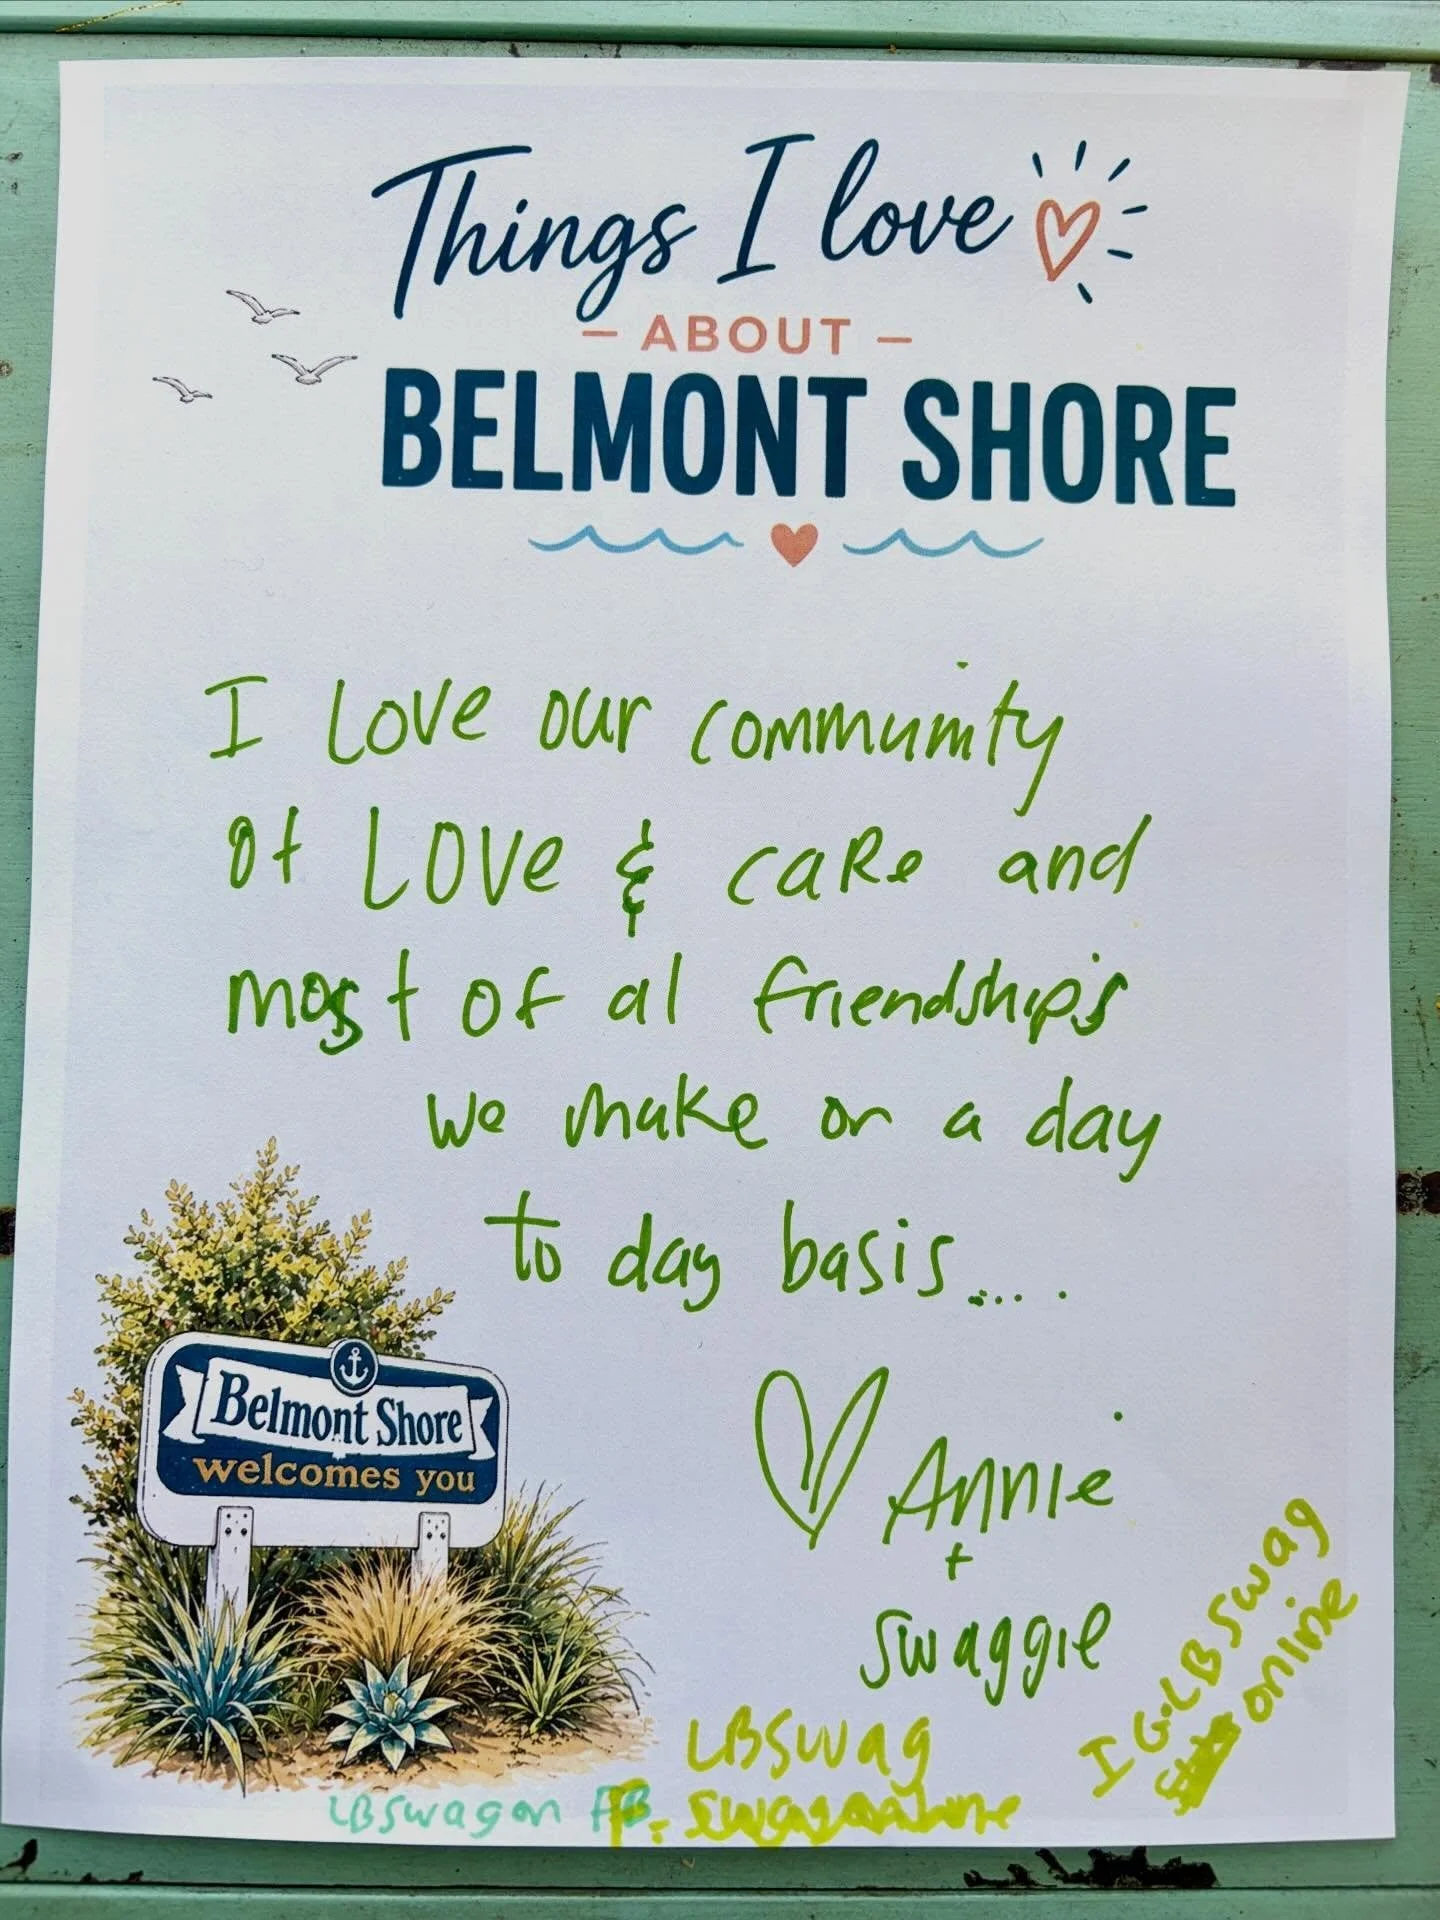 Things I love
– ABOUT –
BELMONT SHORE
I Love our community
of LOVE & caRe and
most of al friendship's
we make on a day
to day basis.....
Annie
+
Swaggie
Belmont Shore
welcomes you
LBSwag
LBSwagon FB
IG. LBSwag
online